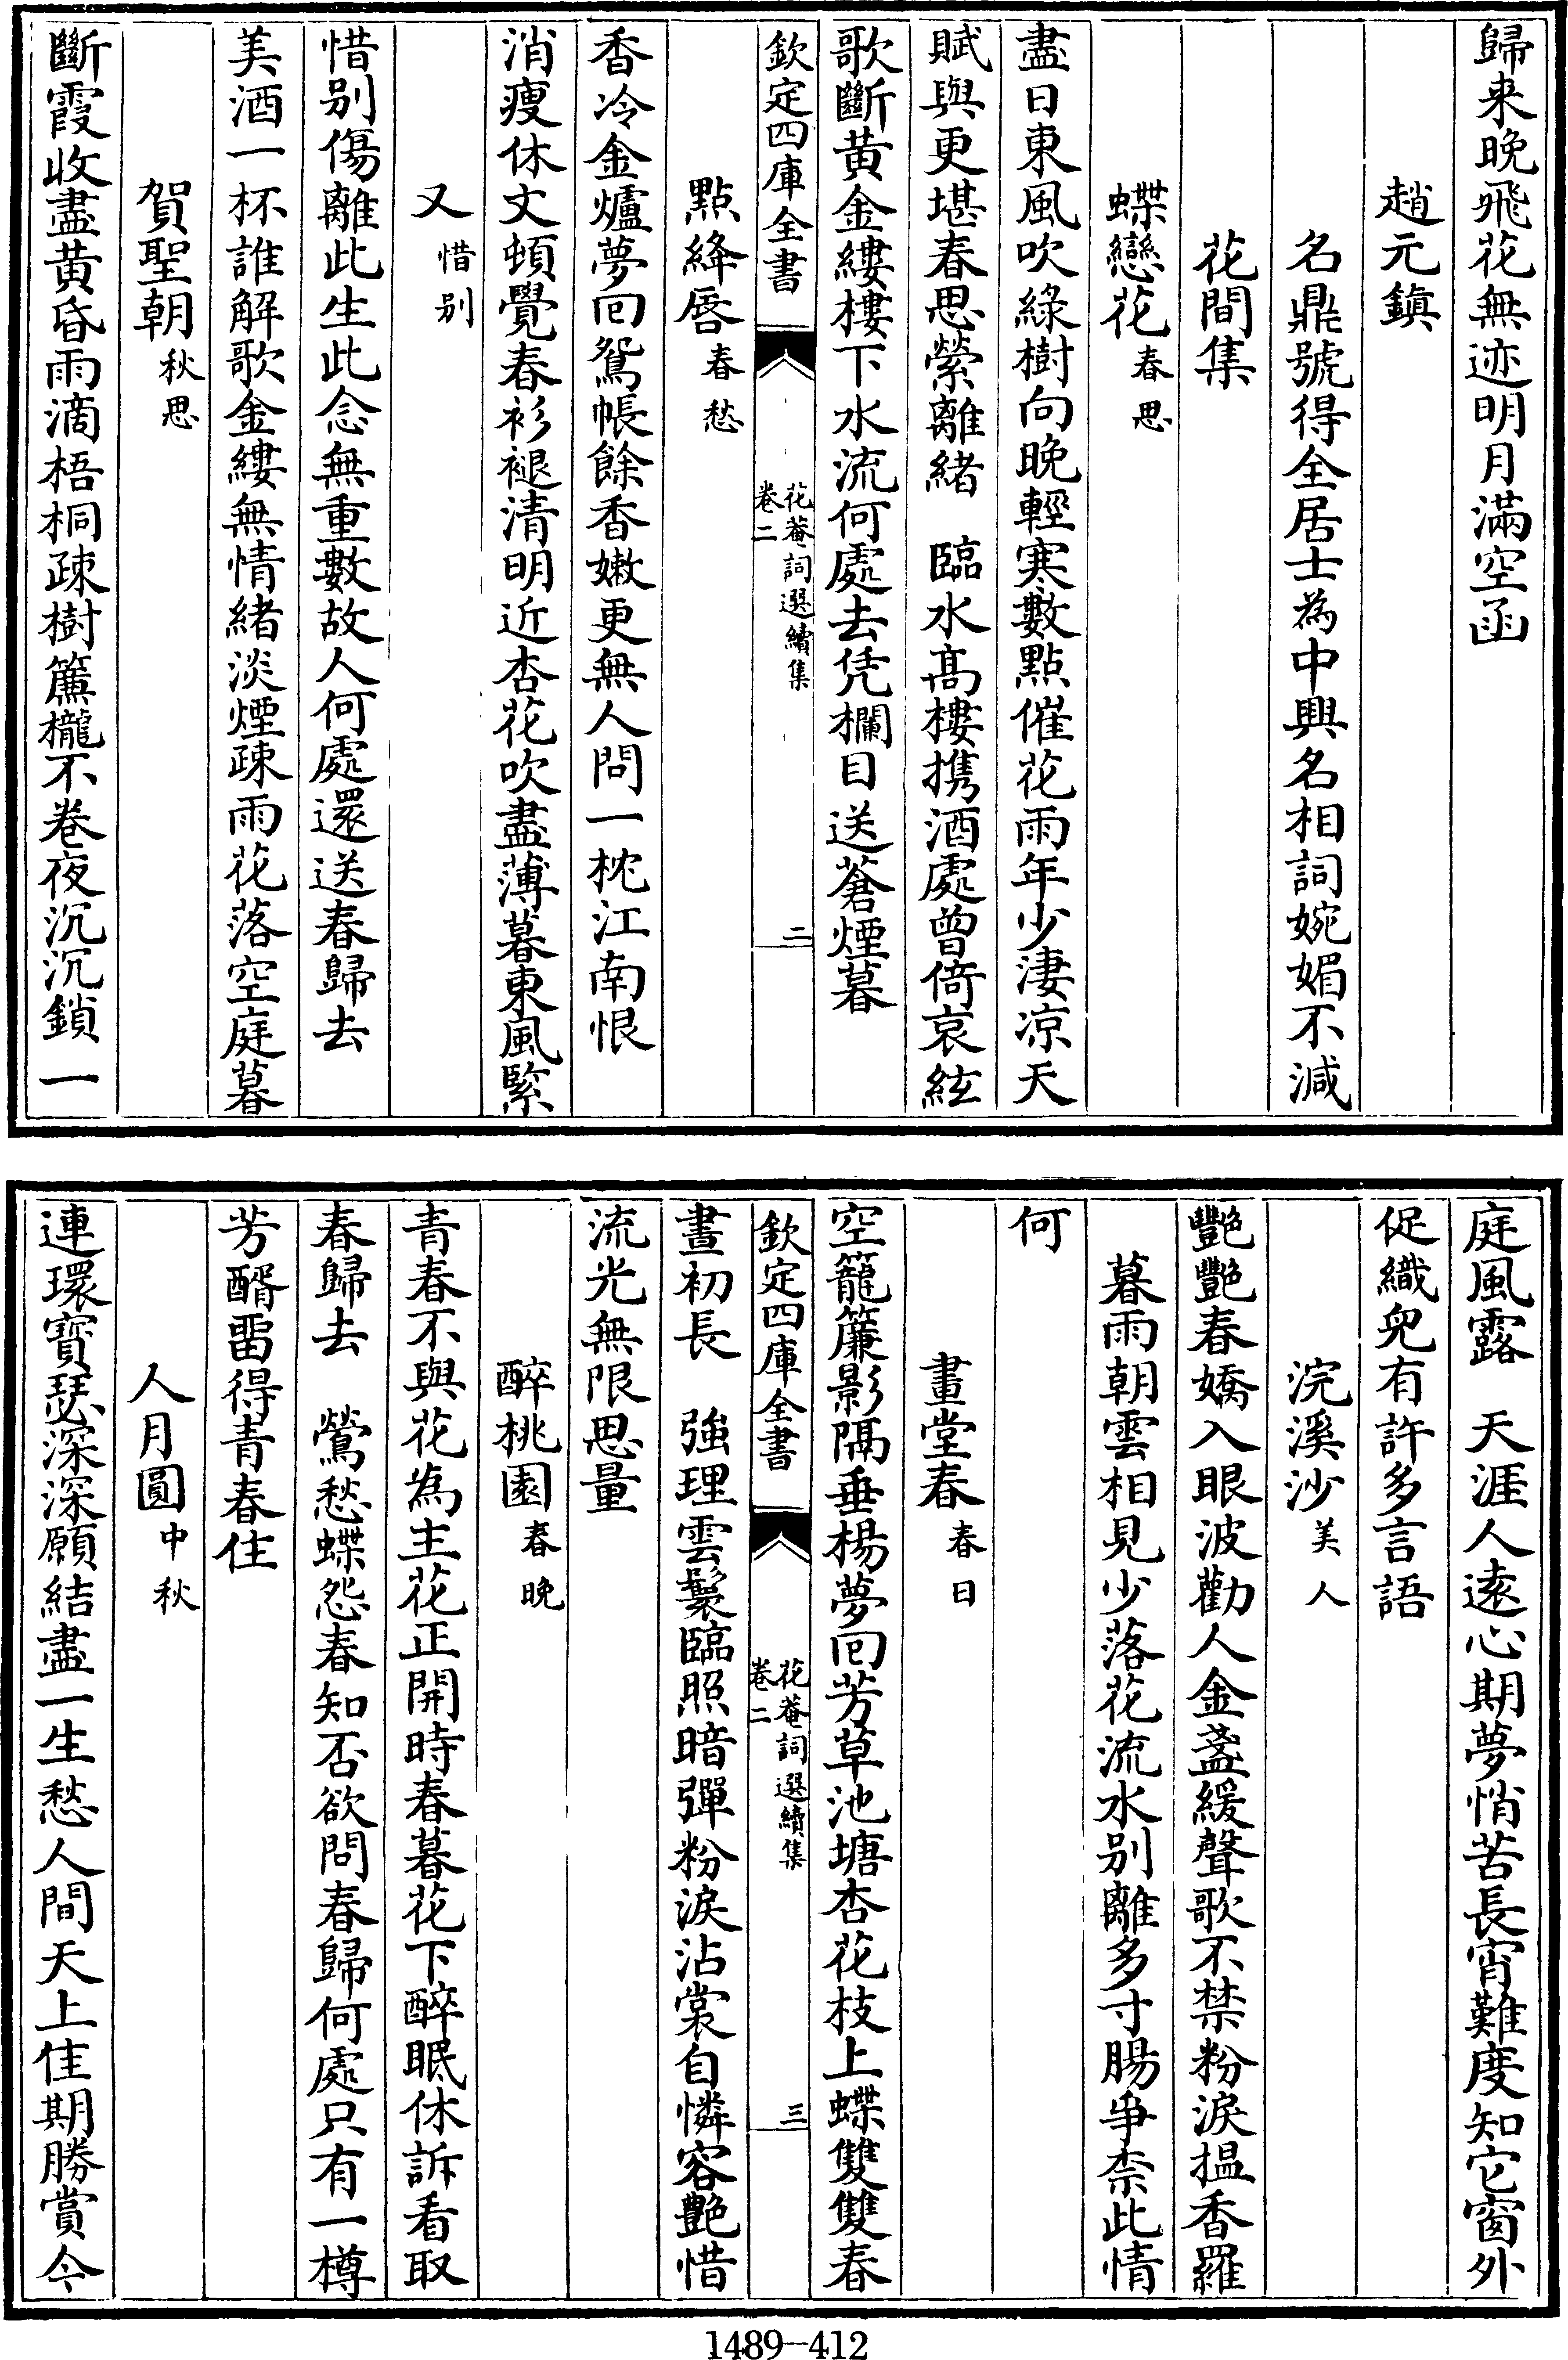 歸来晚飛花無迹明月滿空函
趙元鎮
名鼎號得全居士為中興名相詞婉媚不減
花間集
蝶戀花春思
盡日東風吹綠樹向晚輕寒數點催花雨年少淒凉天
賦與更堪春思縈離緒　臨水髙樓携酒處曾倚哀絃
歌斷黄金縷樓下水流何處去凭欄目送蒼煙暮
欽定四庫全書　花菴詞選續集卷二　二
點絳唇春愁
香冷金爐夢囘鴛帳餘香嫩更無人問一枕江南恨
消瘦休文頓覺春衫褪清明近杏花吹盡薄暮東風緊
又惜别
惜别傷離此生此念無重數故人何處還送春歸去
美酒一杯誰解歌金縷無情緒淡煙疎雨花落空庭暮
賀聖朝秋思
斷霞收盡黄昏雨滴梧桐疎樹簾櫳不卷夜沉沉鎖一
庭風露　天涯人逺心期夢悄苦長宵難度知它窗外
促織兒有許多言語
浣溪沙美人
艷艷春嬌入眼波勸人金盞緩聲歌不禁粉淚搵香羅
暮雨朝雲相見少落花流水别離多寸腸爭柰此情
何
畫堂春春日
空籠簾影隔垂楊夢囘芳草池塘杏花枝上蝶雙雙春
欽定四庫全書　花菴詞選續集卷二　三
晝初長　強理雲鬟臨照暗彈粉淚沾裳自憐容艷惜
流光無限思量
醉桃園春晚
青春不與花為主花正開時春暮花下醉眠休訴看取
春歸去　鶯愁蝶怨春知否欲問春歸何處只有一樽
芳醑畱得青春住
人月圓中秋
連環寶瑟深深願結盡一生愁人間天上佳期勝賞今
1489—412